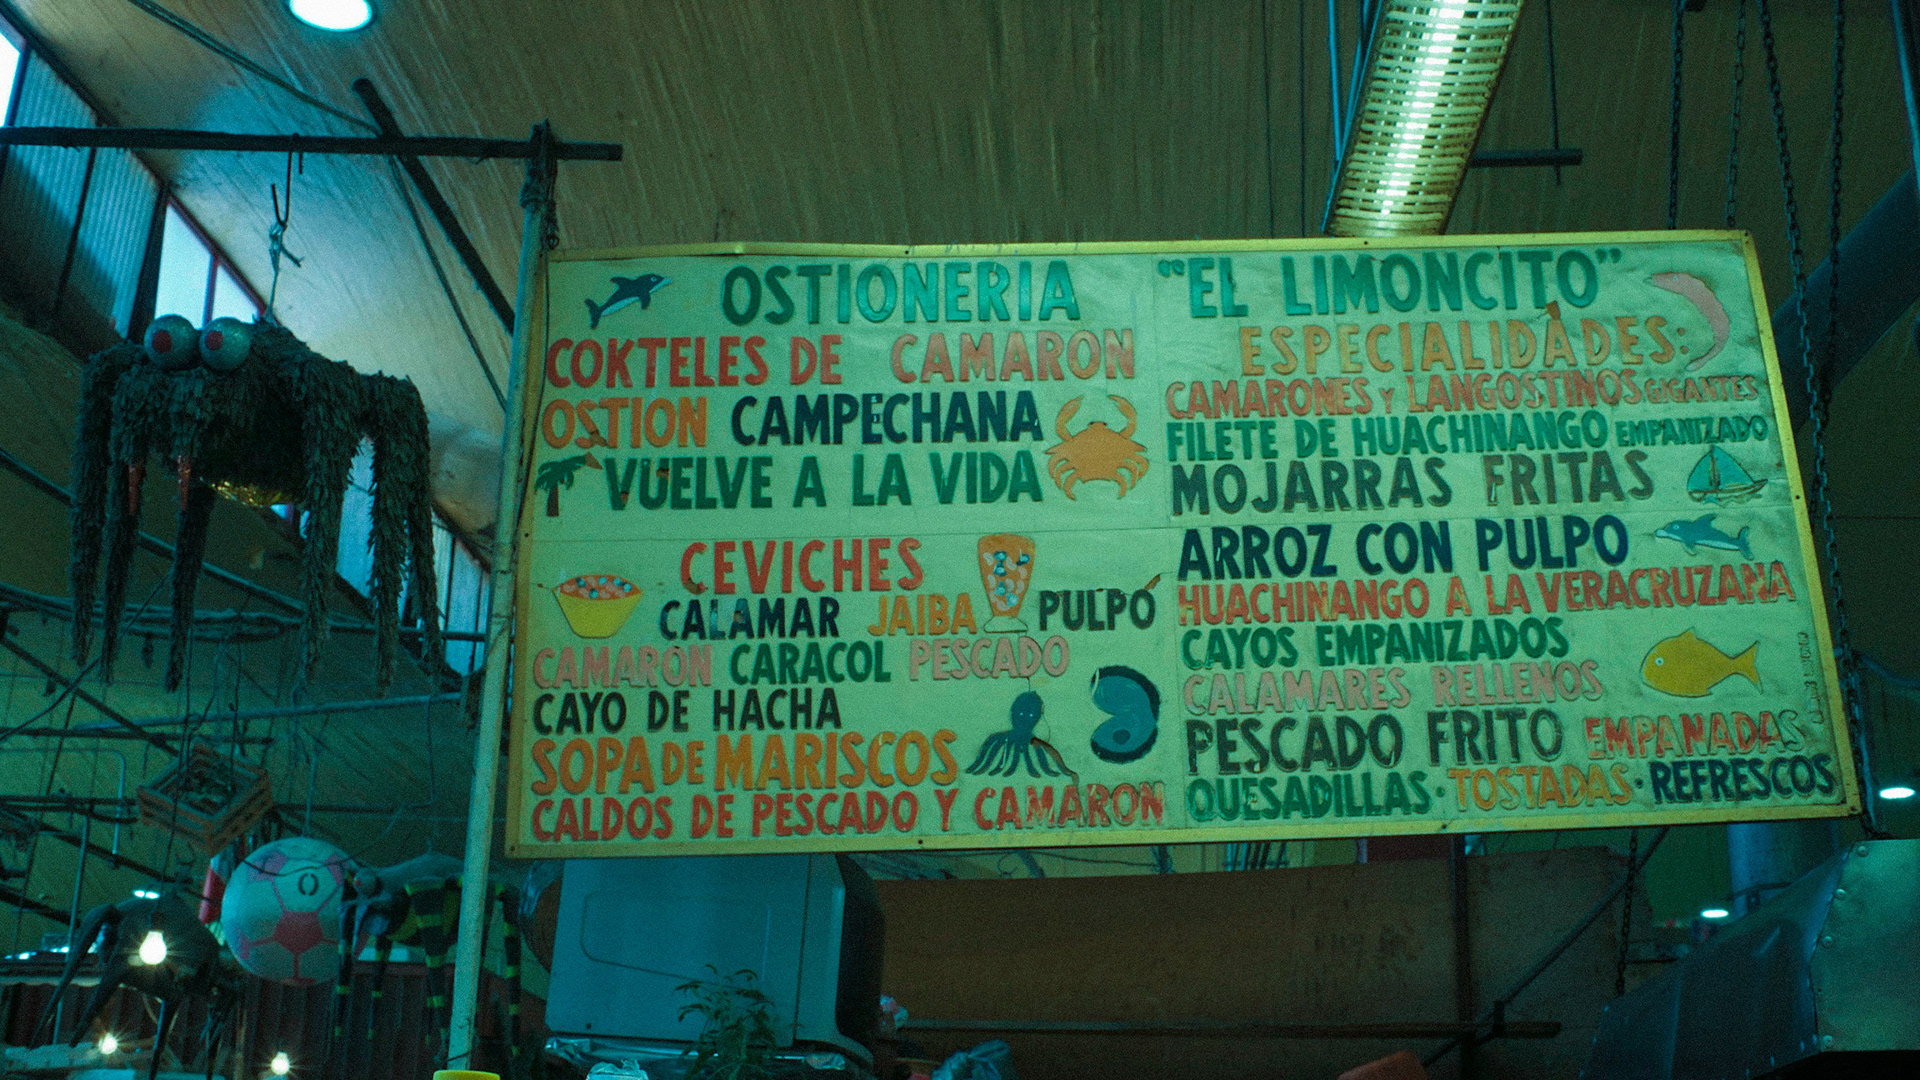 OSTIONERIA "EL LIMONCITO"
COKTELES DE CAMARON
OSTION CAMPECHANA
VUELVE A LA VIDA
CEVICHES
CALAMAR JAIBA PULPO
CAMARON CARACOL PESCADO
CAYO DE HACHA
SOPA DE MARISCOS
CALDOS DE PESCADO Y CAMARON
ESPECIALIDADES:
CAMARONES Y LANGOSTINOS GIGANTES
FILETE DE HUACHINANGO EMPANIZADO
MOJARRAS FRITAS
ARROZ CON PULPO
HUACHINANGO A LA VERACRUZANA
CAYOS EMPANIZADOS
CALAMARES RELLENOS
PESCADO FRITO EMPANADAS
QUESADILLAS · TOSTADAS · REFRESCOS